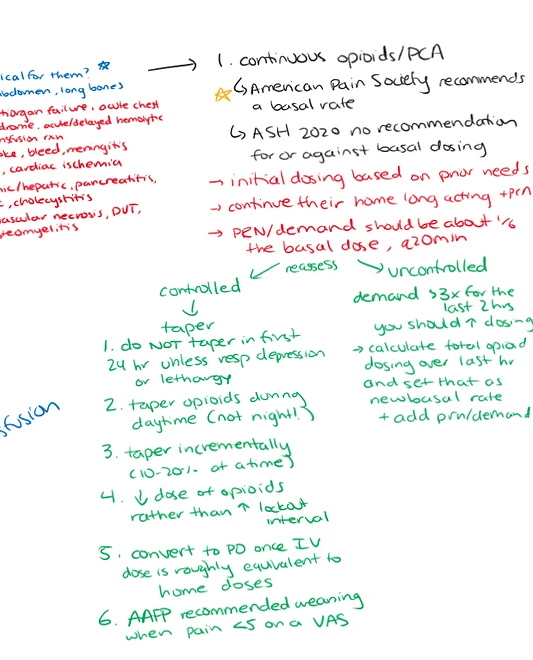 ical for them? ☆
bdomen, long bones
tiorgan failure, acute chest
drome, acute/delayed hemolytic
nsfusion rxn
oke, bleed, meningitis
, cardiac ischemia
nic/hepatic, pancreatitis,
, cholecystitis
ascular necrosis, DVT,
teomyelitis
sfusion
→ 1. continuous opioids/PCA
☆ ↳ American Pain Society recommends
a basal rate
↳ ASH 2020 no recommendation
for or against basal dosing
→ initial dosing based on prior needs
→ continue their home long acting + prn
→ PEN/demand should be about 1/6
the basal dose, q20min
reassess
controlled
↓
taper
1. do NOT taper in first
24 hr unless resp depression
or lethargy
2. taper opioids during
daytime (not night!)
3. taper incrementally
(10-20% at a time)
4. ↓ dose of opioids
rather than ↑ lockout
interval
5. convert to PO once IV
dose is roughly equivalent to
home doses
6. AAFP recommended weaning
when pain <5 on a VAS
uncontrolled
demand >3x for the
last 2 hrs
you should ↑ dosing
→ calculate total opioid
dosing over last hr
and set that as
new basal rate
+ add prn/demand